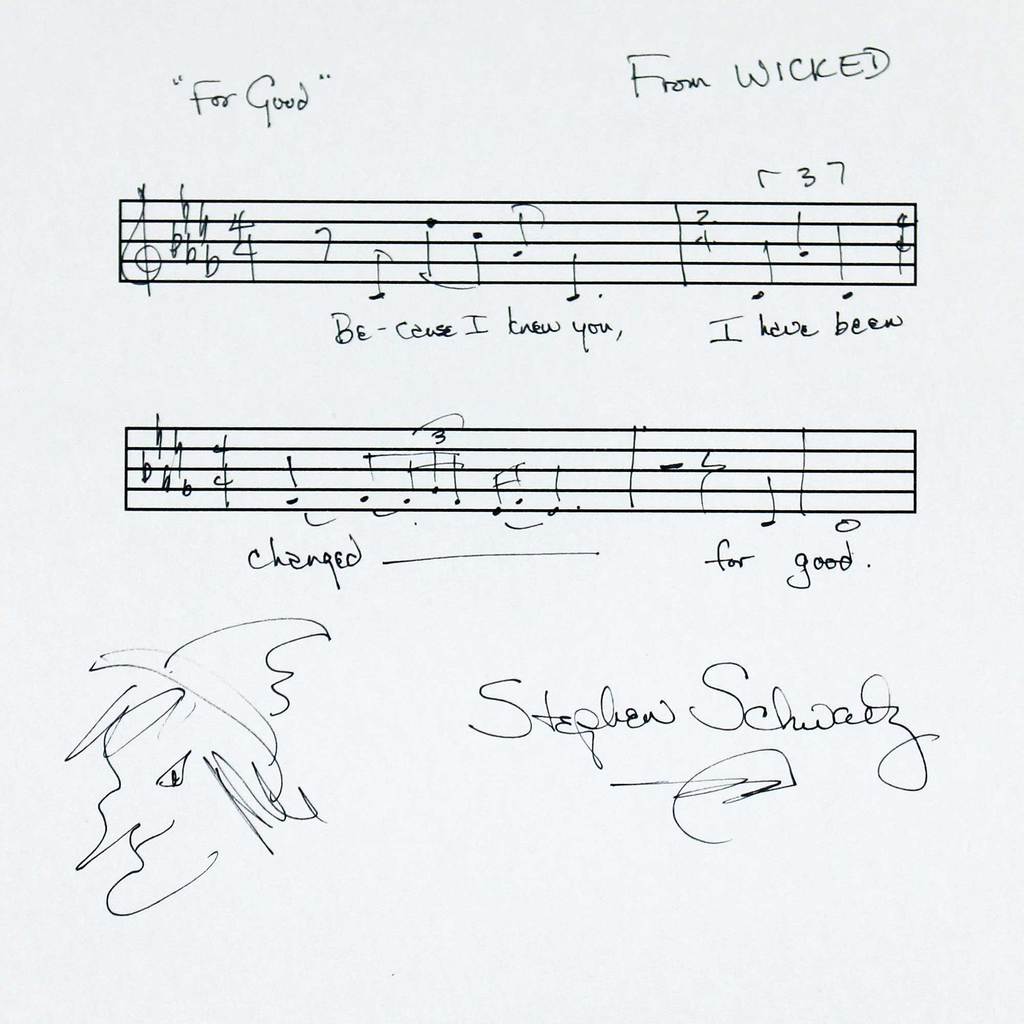 "For Good"
From WICKED
4
4
2
4
3
4
4
Be-cause I knew you,
I have been
4
4
3
changed
for good.
Stephen Schwartz